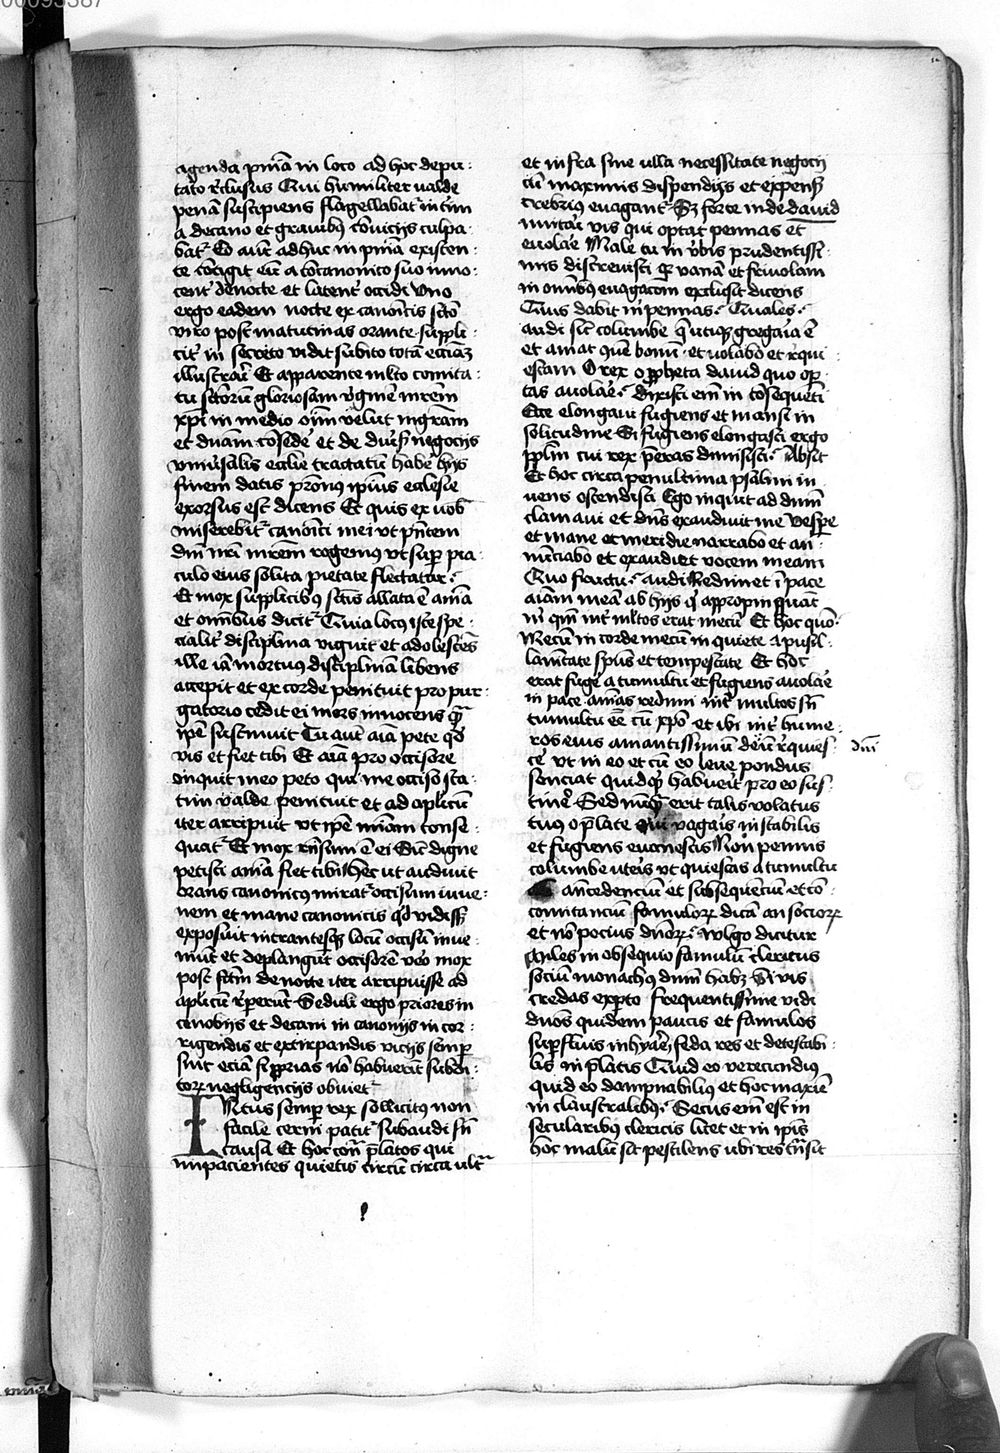 agenda pniā in loco ad hoc depu
tato rclusus Qui humiliter valde
penā suscipiens flagellabat in tim
a decano et gravibꝰ cōvicijs culpa
bat Eo aūt adhuc in pniā existen
te cōtigit eū a cōcanonico suo inno
cent denocte et latent occidi Uno
ergo eadem nocte ex canōicis scīo
viro post matutinas orante suppli
cit in secreto vidit subito totā ecciāz
illustrari Et apparente mlto comita
tu sctorum gloriosam virginē mrēm
xpi in medio oīm velut ingram
et dnam cōsede et de diūs negocijs
vniusalis ecclie tractatū habē hijs
finem datis pronꝰ ipius ecclesie
exorsus est dicens Et quis ex uob
miserebit canōici mei vt pntem
dm nri mrēm rogemꝰ vt sup pia
culo eius solita pietate flectatur
Et mox supplicibꝰ sctis allata ē aīa
et omnibus dicit Quia locꝰ iste spe
cialit disciplina viguit et adolescēs
ille iā mortuꝰ disciplinā libens
accepit et ex corde penituit pro pur
gatorio cedit ei mors innocens quā
ipē sustinuit Tu aut aīa pete qd
vis et fiet tibi Et aīa pro occisore
inquit meo peto qui me occiso sta
tim valde penituit et ad aplicū
iter arripuit vt ipē miam conse
quat Et mox rnsum ē ei Sic digne
petisti aīa fiet tibi Hec ut audiuit
orans canonicꝰ mirat occisum iuue
nem et mane canonicis qd vidiss
exposuit intrantesqꝫ locū occisū inue
niūt et deplangūt occisorē vero mox
post fcm denocte iter arripuisse ad
aplicū rperūt Seduli ergo priores in
cenobijs et decani in canonijs in cor
rigendis et extirpandis vicijs semp
sint eciā si pprias nō habuerīt subdi
torꝝ negligencijs obuiet
INtus semp rex sollicitꝰ non
facile cerni patit subaudi sn
causa Et hoc con platos qui
impacientes quietis circū circa vlt
et infra sine ulla necessitate negocij
cū maximis dispendijs et expens
crebriꝰ euagant Sꝫ forte inde dauid
mitari vis qui optat pennas et
euolare Male tu in vbis prudentissi
mis discreuisti qr vanā et friuolam
in omibꝰ euagacom exclusit dicens
Quis dabit mi pennas Quales
audi sic columbe q utiqꝫ gregaria ē
et amat quē bonū et volabo et rqui
escam O rex o ppheta dauid quo op
tas auolare Dixisti em in cōsequēti
Ecce elongaui fugiens et mansi in
solitudine Si fugiens elongasti ergo
pplm cui rex peras dimisisti Absit
Et hoc circa penultima psalmi in
uens ostendisti Ego inquit ad dnm
clamaui et dns exaudiuit me Vespe
et mane et meridie narrabo et an
nūciabo et exaudiet vocem meam
Quo fructu audi Redimet ī pace
aīam meā ab hijs q appropinquāt
m qm int mltos erat mecū Et hoc quo
Mecū in corde mecū in quiete a pusil
lanitate spus et tempestate Et hoc
erat fuge a tumultu et fugiens auolare
in pace aīmas redimi int multos sn
tumultu eē cū xpo et ibi int hume
ros eius amantissimū deū rquies
ce vt in eo et cū eo leue pondus
senciat quidqd habuerit pro eo sus
tinē Sed nuqd erit talis volatus
tuꝰ o plate qui vagaris instabilis
et fugiens euanescis Non pennis
columbe vteris vt quiescas a tumultu
ancedenciū et subsequenciū et cō
comitanciū famulorꝝ dicā an sociorꝝ
et nō pocius dnorꝝ Wlgo dicitur
Miles in obsequio famulū clericus
sociū monachꝰ dnm habꝫ Si vis
credas expto frequentissime vidi
duos quidem paucis et famulos
supfluis inhyare feda res et detestabi
lis in platis Quid eo verecundiꝰ
quid eo dampnabiliꝰ et hoc maxie
in claustralibꝰ Secus em est in
secularibꝰ clericis licet et in ipis
hoc malū sit pestilens ubi res tnsit
dni